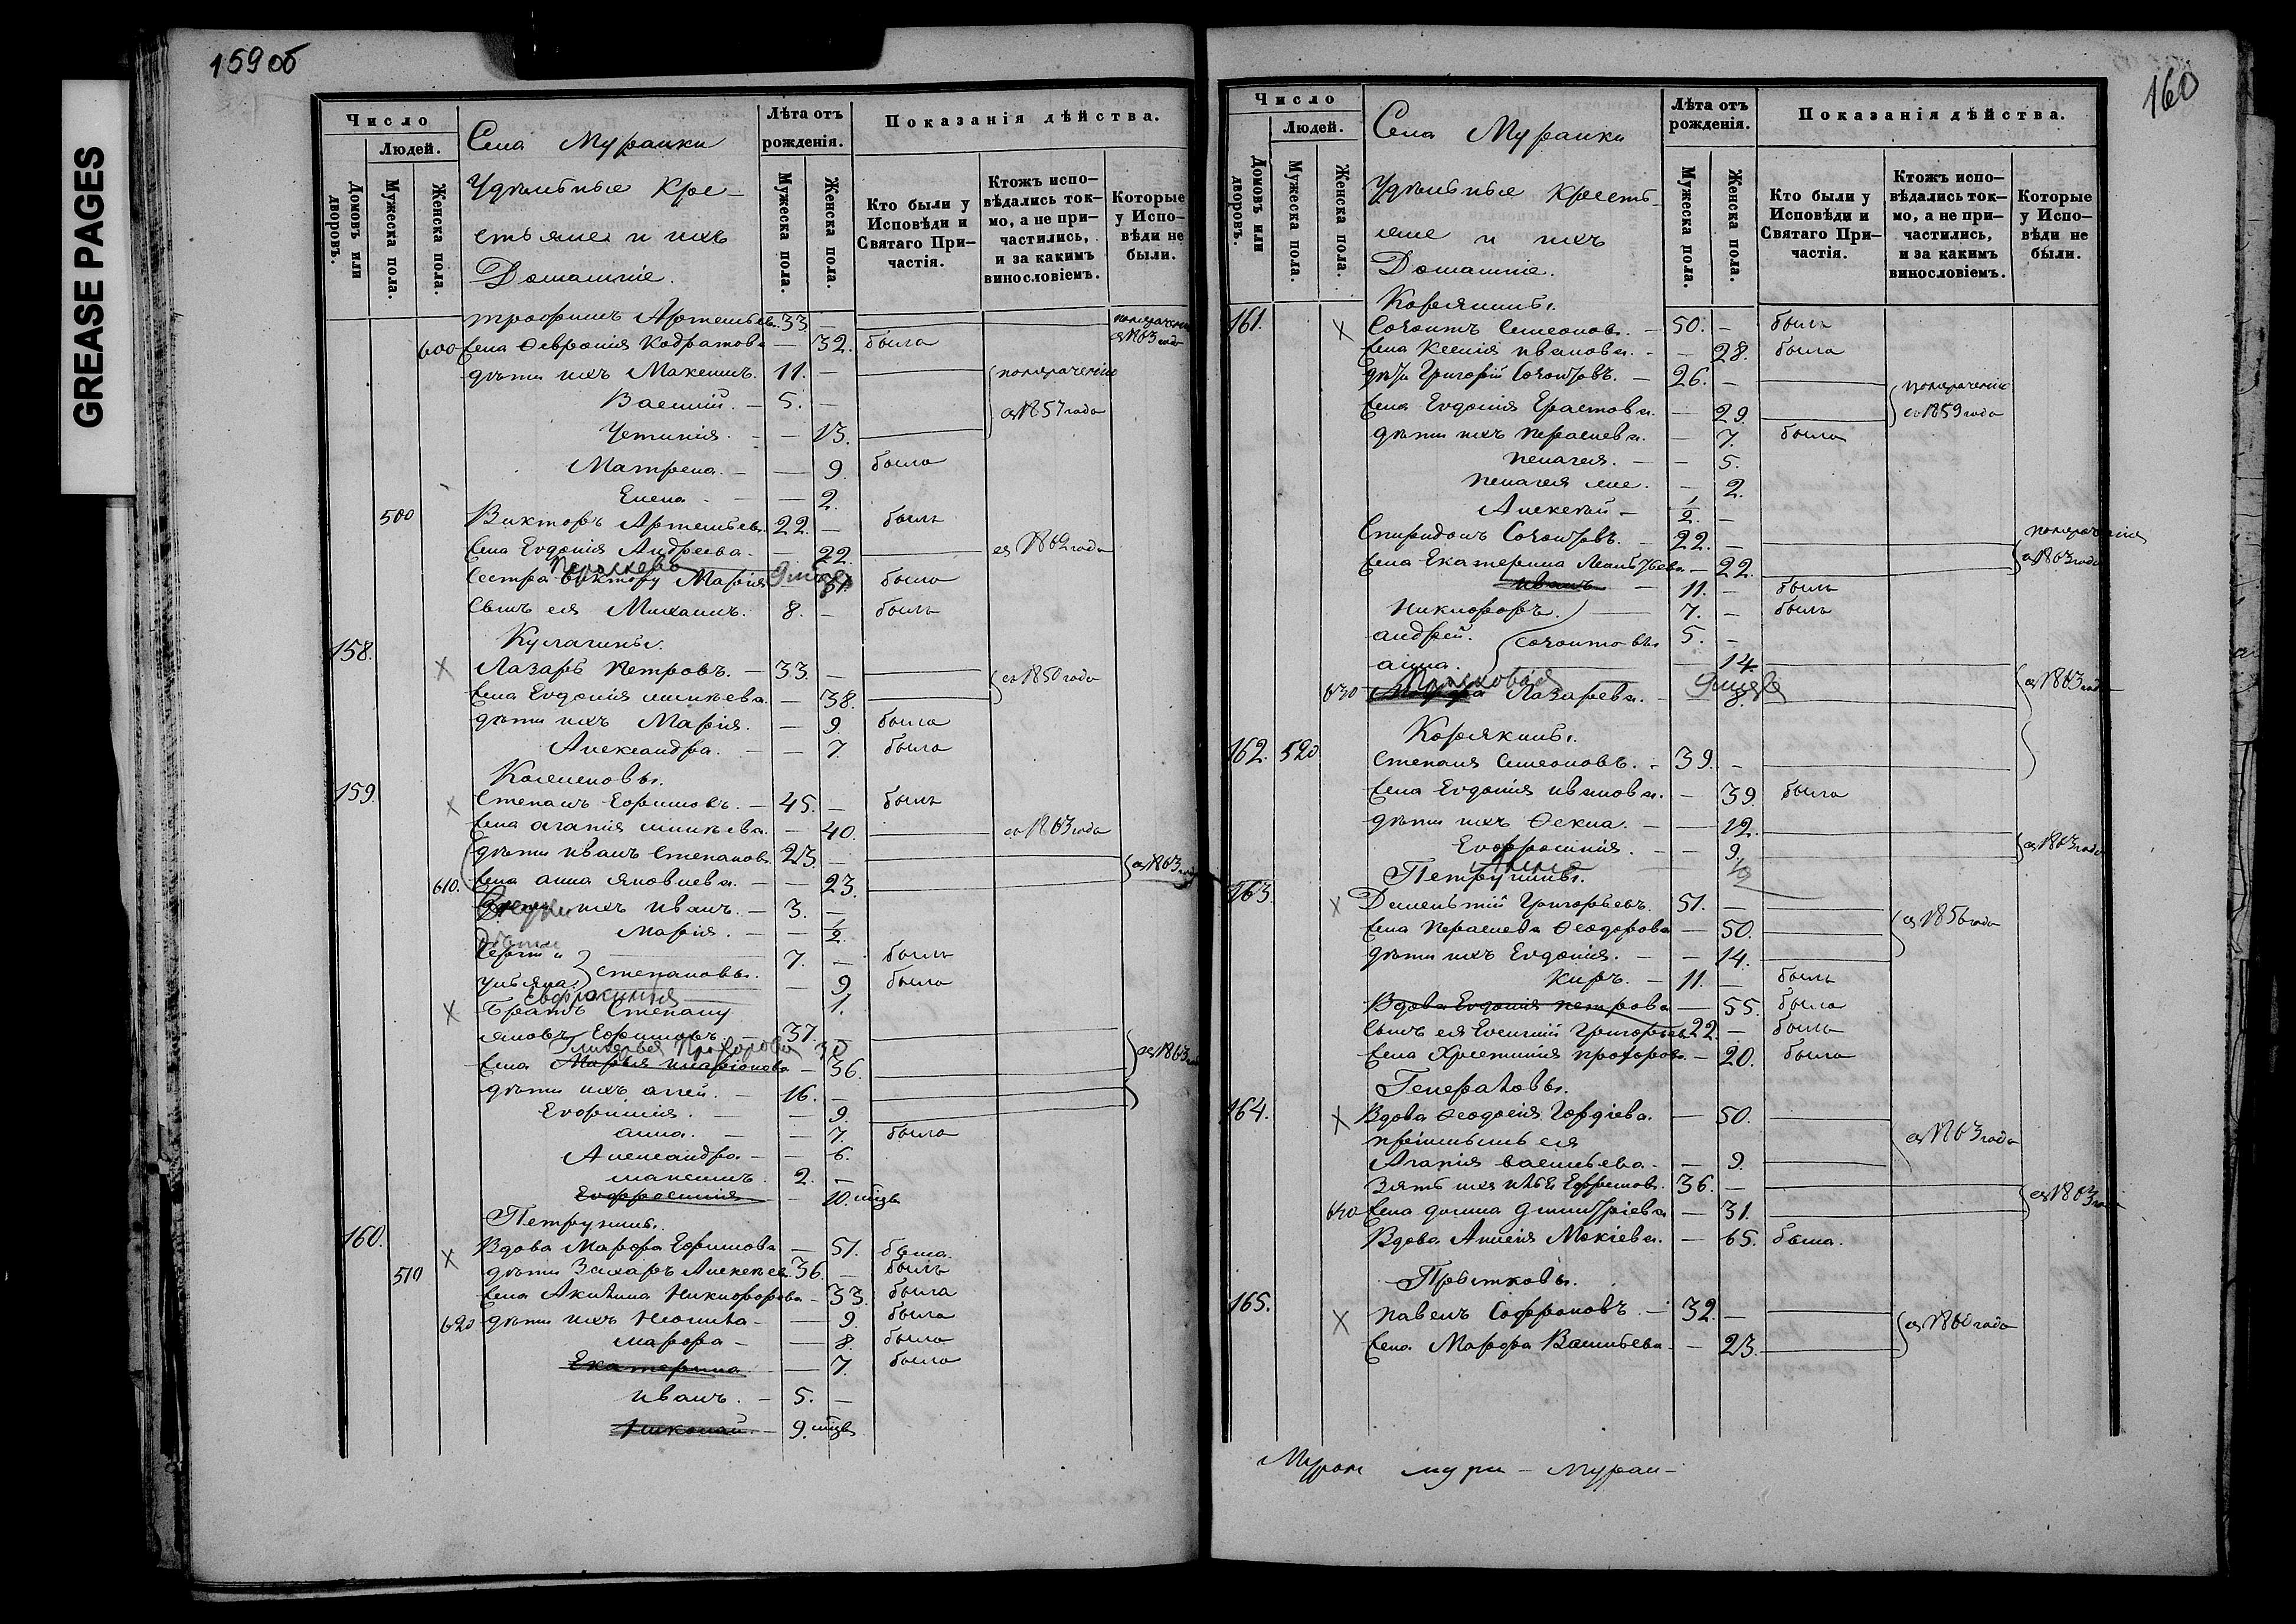 GREASE PAGES
159 об
Число
Людей.
Домовъ или дворовъ.
Мужеска пола.
Женска пола.
Села Муранки
Удѣльные Кре-
стьяне и ихъ
Домашніе.
Лѣта отъ рожденія.
Мужеска пола.
Женска пола.
Показанія дѣйства.
Кто были у Исповѣди и Святаго При-частія.
Ктожъ испо-вѣдались ток-мо, а не при-частились, и за какимъ винословіемъ.
Которые у Испо-вѣди не были.
Трофимъ Артемьевъ 33. —
съ 1863 года
600 Жена Феврония Кодратова — 32. была
дѣти ихъ Максимъ. 11. —
Василій. — 5. — съ 1857 года
Устинія. — 13.
Матрена. — 9. была
Елена — 2.
500 Викторъ Артемьевъ. 22. — былъ
Жена Евдокія Андреева. — 22. съ 1862 года
Сестра Виктору Марія была
Сынъ ея Михаилъ. 8. — былъ
158. Кулагины.
Х Лазарь Петровъ. — 33. — съ 1850 года
Жена Евдокія — 38.
дѣти ихъ Марія. — 9. была
Александра. — 7. была
159. Колесновы.
х Степанъ Ефимовъ. — 45. — былъ
Жена Агапія — 40. съ 1863 года
дѣти Иванъ Степановъ 23. — съ 1863 года
610. Жена Анна Яковлева. — 23.
ихъ Иванъ. — 3. —
Марія. — 1/2.
дѣти
Сергій 7. — былъ
Ульяна Степановы. — 9 была
Евфросинія 1.
х Братъ Степану
Яковъ Ефимовъ — 37. —
Гликерья Прохорова 35
Жена — 36. съ 1863 года
дѣти ихъ — 16. —
Евфимія. — 9.
Анна. — 7. была
Александра — 6.
Максимъ. 2. —
Евфросинія — 10. мцвъ
160. Петрунины.
х Вдова Марфа Ефимова — 51. была.
510 дѣти Захаръ Алексеев. 36. — былъ
Жена Акилина Никифорова — 33. была
620 дѣти ихъ Неонила — 9. была
Марфа — 8. была
Екатерина — 7. была
Иванъ. — 5. —
Николай — 9. мцвъ
160
Число
Людей.
Домовъ или дворовъ.
Мужеска пола.
Женска пола.
Села Муранки
Удѣльные Кресть-
яне и ихъ
Домашніе.
Лѣта отъ рожденія.
Мужеска пола.
Женска пола.
Показанія дѣйства.
Кто были у Исповѣди и Святаго При-частія.
Ктожъ испо-вѣдались ток-мо, а не при-частились, и за какимъ винословіемъ.
Которые у Испо-вѣди не были.
161. Корякины.
х Созонтъ Семеонов. — 50. — былъ
Жена Ксенія Иванова. — 28. была
дѣти Григорій Созонтовъ. — 26. —
Жена Евдокія Ерастова. — 29. съ 1859 года
дѣти ихъ Параскева. — 7. была
Пелагея. — 5.
Пелагея — 2.
Алексей — 1/2. —
Спиридонъ Созонтовъ. — 22. —
Жена Екатерина — 22. съ 1863 года
Иванъ — 11. — былъ
Никифоръ. 7. — былъ
Андрей. Созонтовы 5. —
Анна. — 14.
Прасковья
630 Лазарева. — 8. съ 1863 года
Корякины.
162. 520 Степанъ Семеоновъ. — 39. —
Жена Евдокія Иванова. — 39. была
дѣти ихъ Фекла. — 12.
Евфросинія. — 9. съ 1863 года
163. Петрунины.
х Дементій Григорьевъ. 51. —
Жена Параскева Феодорова — 50. съ 1856 года
дѣти ихъ Евдокія. — 14.
Киръ. — 11. — былъ
Вдова Евдокія Петрова — 55. была
Сынъ ея Евсигній Григорьев. 22. — былъ
Жена Христинія Прохорова. — 20. была
Генераловы.
164. х Вдова Феодосія Гордіева. — 50.
ея съ 1863 года
Агапія Васильева. — 9.
Зять 36. —
640 Жена Домна Димитріева — 31. съ 1863 года
Вдова Мокіева. — 65. была.
Прытковы.
165. х Павелъ Софроновъ. — 32. — съ 1860 года
Жена Марфа Васильева. — 23.
Муран мури — Муран —